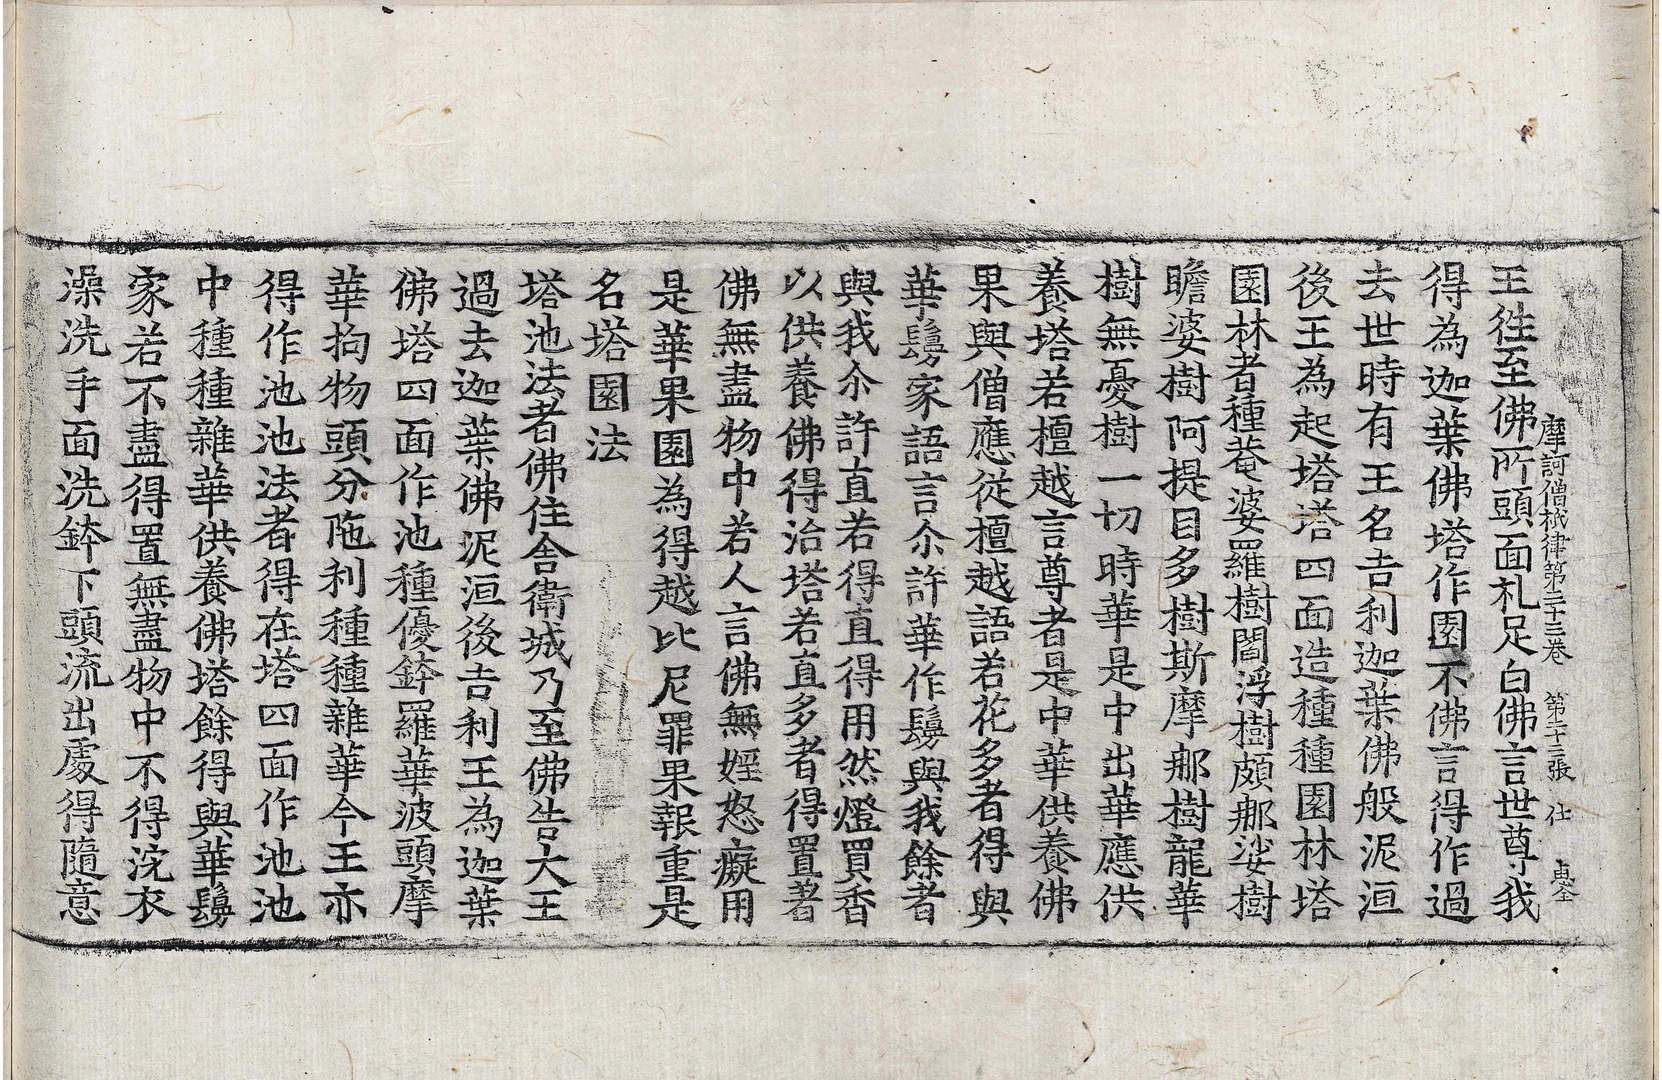 摩訶僧祇律第三十三卷　第二十二張　仕
王徃至佛所頭面札足白佛言世尊我
得為迦葉佛塔作園不佛言得作過
去世時有王名吉利迦葉佛般泥洹
後王為起塔塔四面造種種園林塔
園林者種菴婆羅樹閻浮樹頗那娑樹
瞻婆樹阿提目多樹斯摩那樹龍華
樹無憂樹一切時華是中出華應供
養塔若檀越言尊者是中華供養佛
果與僧應從檀越語若花多者得與
華鬘家語言尒許華作鬘與我餘者
與我尒許直若得直得用然燈買香
以供養佛得治塔若直多者得置著
佛無盡物中若人言佛無婬怒癡用
是華果園為得越比尼罪果報重是
名塔園法
塔池法者佛住舍衛城乃至佛告大王
過去迦葉佛泥洹後吉利王為迦葉
佛塔四面作池種優鉢羅華波頭摩
華拘物頭分陁利種種雜華今王亦
得作池池法者得在塔四面作池池
中種種雜華供養佛塔餘得與華鬘
家若不盡得置無盡物中不得浣衣
澡洗手面洗鉢下頭流出處得隨意